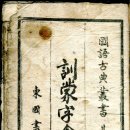 國語古典叢書
訓蒙字會
東國書